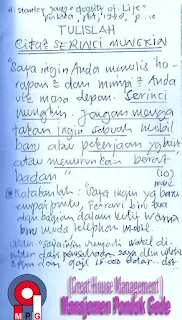 H. Stanley Janz "Quality of Life"
pustaka, 1984, 1990, p. 10
TULISLAH
CITA² SERINCI MUNGKIN
"Saya ingin Anda menulis ha-
rapan² dan mimpi² Anda
utk masa depan. Serinci
mungkin. Jangan menga-
takan ingin sebuah mobil
baru atau pekerjaan yg baik
atau menurunkan berat
badan"
(10)
Katakanlah: "Saya ingin
empat pintu, Ferrari biru tua
dgn bagian dalam kulit
biru muda telepon mobil.
Atau "Saya ingin menjadi wakil di-
rektur dari perusahaan saya
dgn gaji 10.000 dolar
MPG
[Great House Management]
Manajemen Pondok Gede